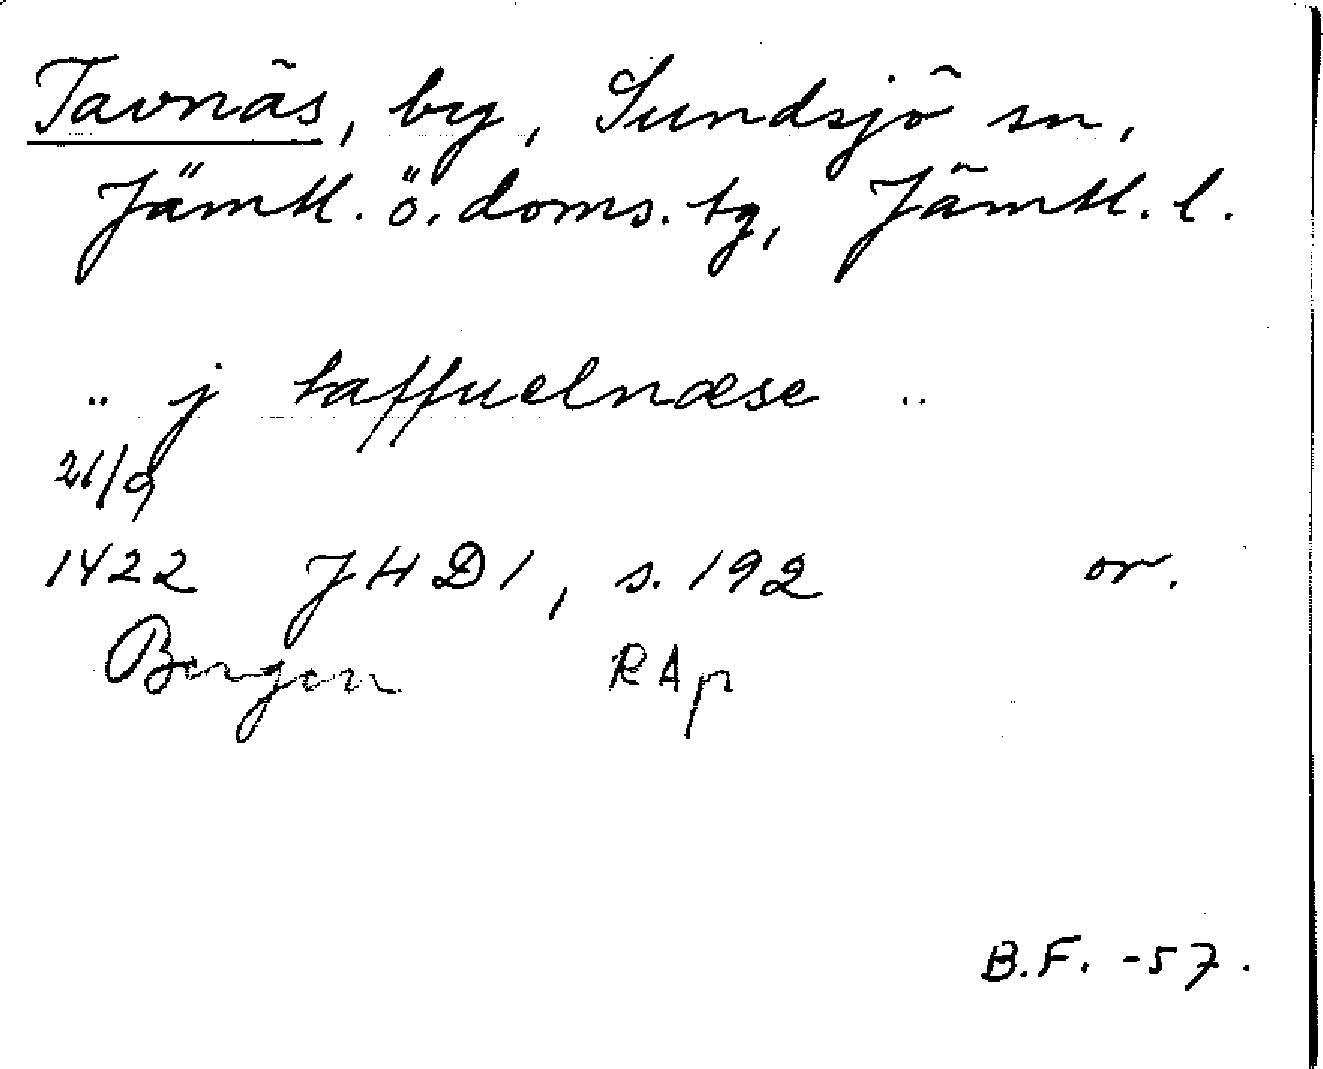 Tavnäs, by, Sundsjö sn,
Jämtl. ö. doms. tg, Jämtl. l.
.. j taffuelnæse ..
21/9
1422 JHD 1, s. 192 or.
Bergen RAp
B.F. -57.